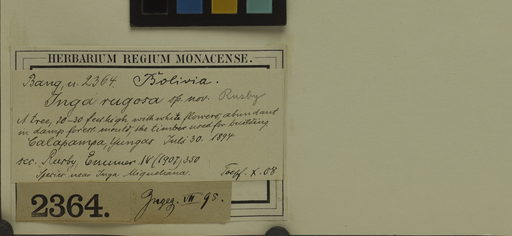 HERBARIUM REGIUM MONACENSE.
Bang, n. 2364. Bolivia.
Inga rugosa sp. nov. Rusby
A tree, 20-30 feet high, with white flowers, abundant
in damp forest, the timber used for building
Calapampa, Yungas Juli 30. 1894
sec. Rusby, Enumer IV (1907) 350
Species near Inga Miqueliana. X. 08
2364. VII 98.